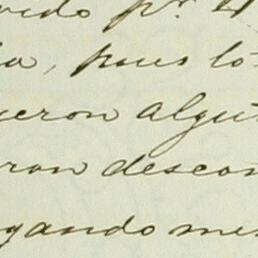 vido pr. 4
a, pues lo
eron algu
ron descon
gando me